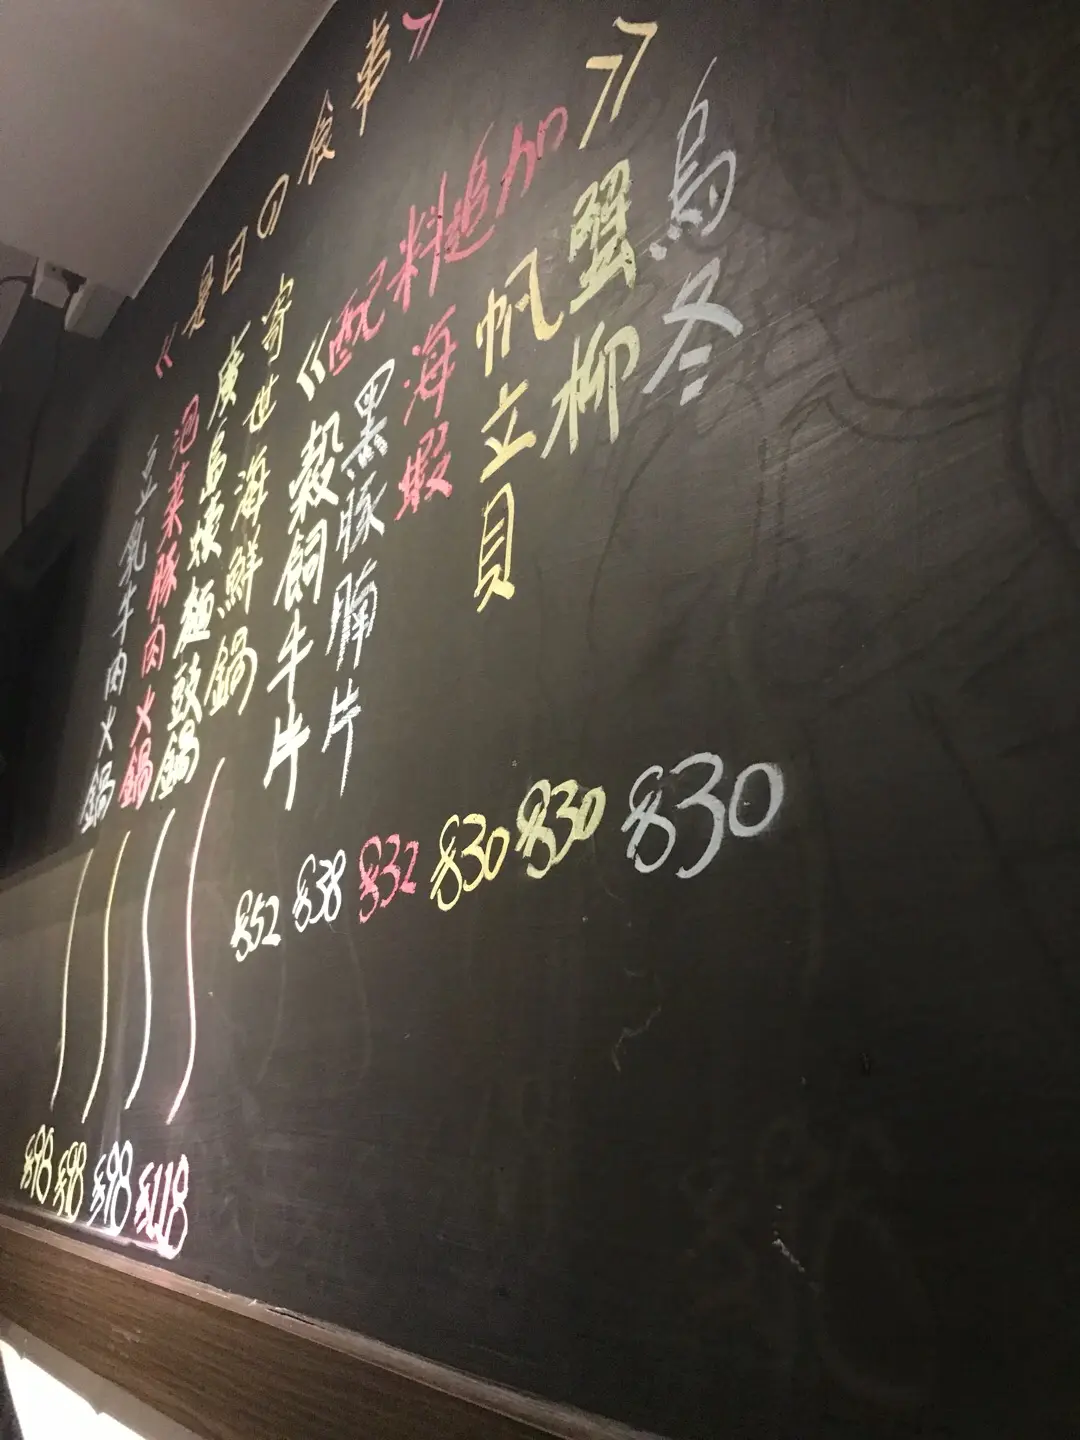 《是日の食事》
豆乳牛肉火鍋 $98
泡菜豚肉火鍋 $98
広島蠔麵豉鍋 $98
寄世海鮮鍋 $118
《配料追加》
穀飼牛片 $52
黑豚腩片 $38
海蝦 $32
帆立貝 $30
蟹柳 $30
烏冬 $30